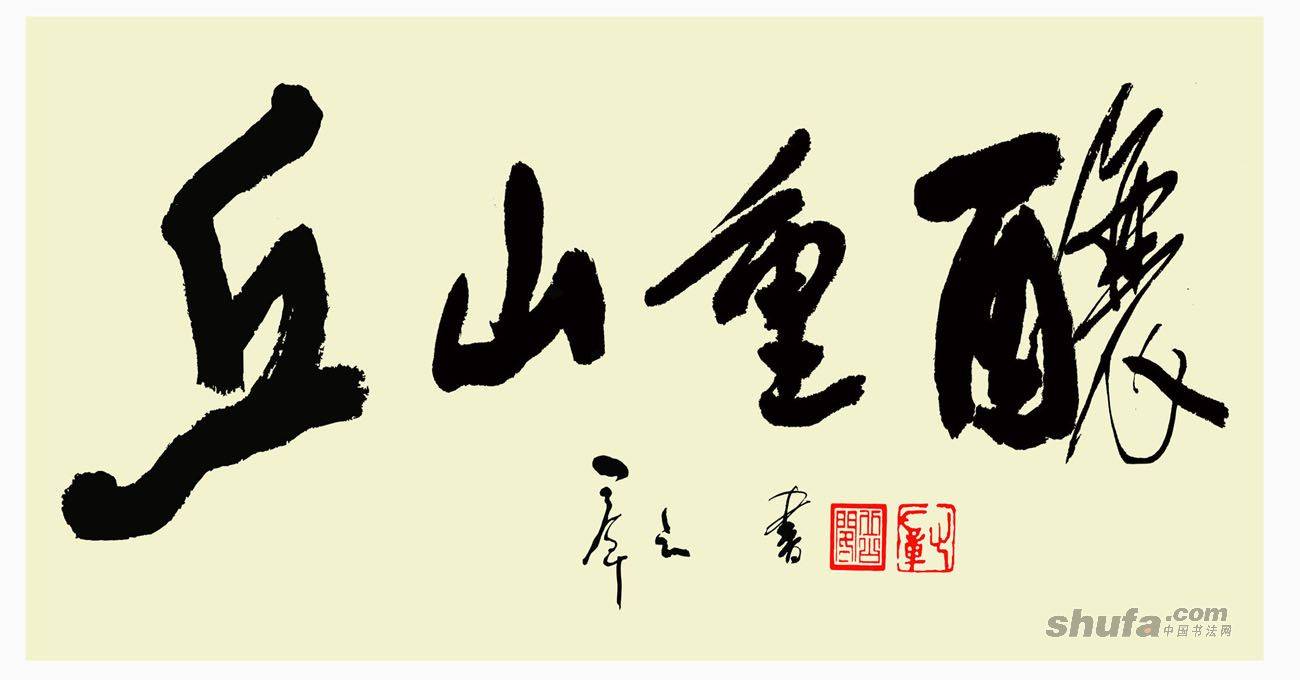 丘山重酿
书
shufa.com
中国书法网